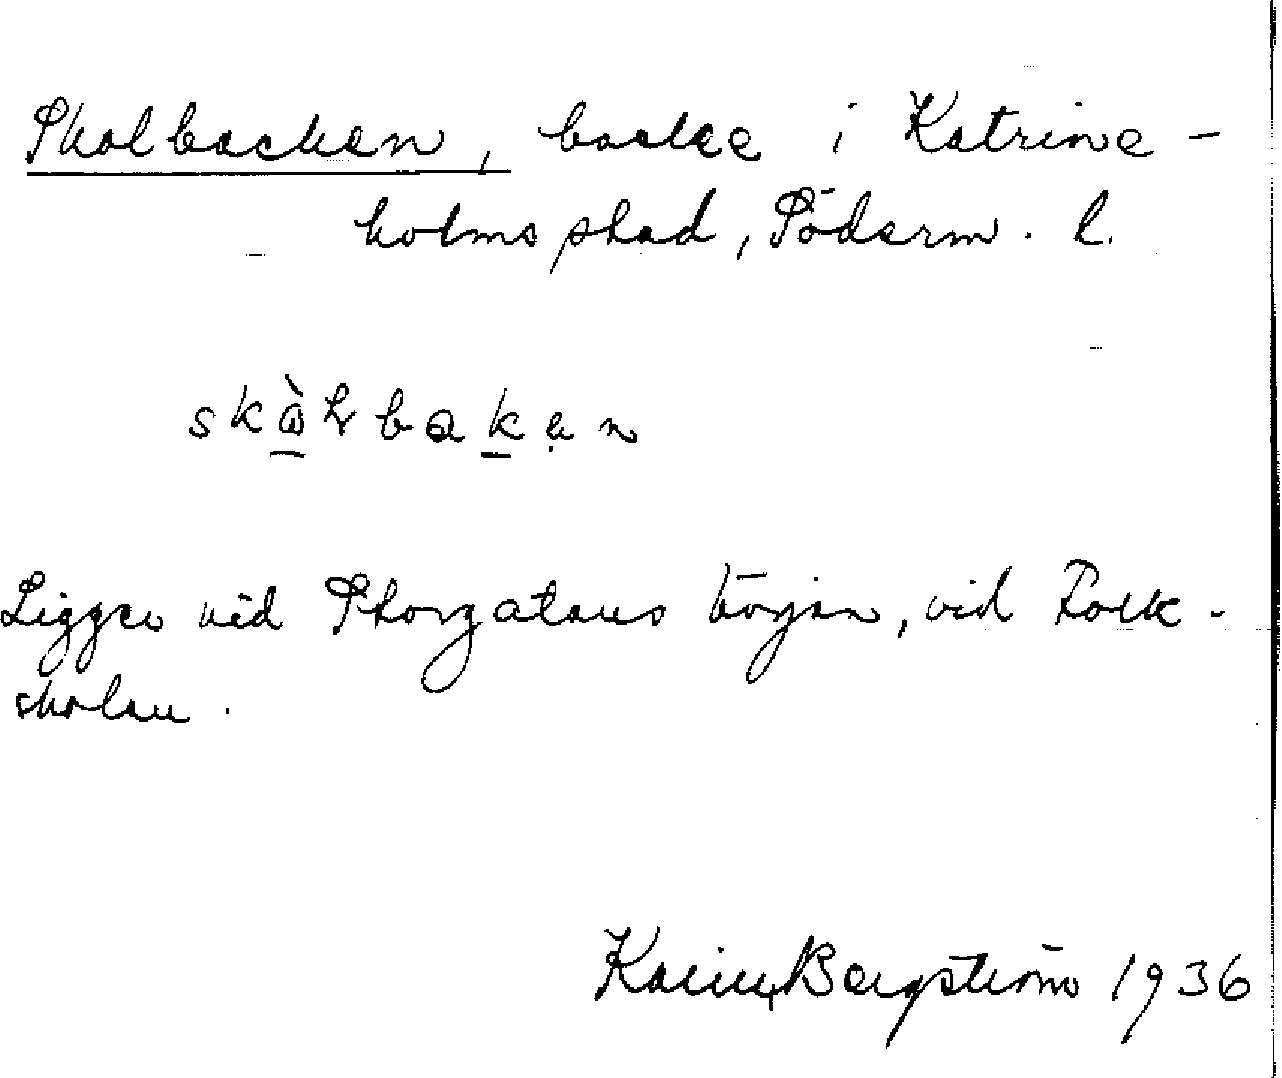 Skolbacken, backe i Katrine-
holms stad, Söderm. l.
Ligger vid Storgatans början, vid Folk-
skolan.
Karin Bergström 1936